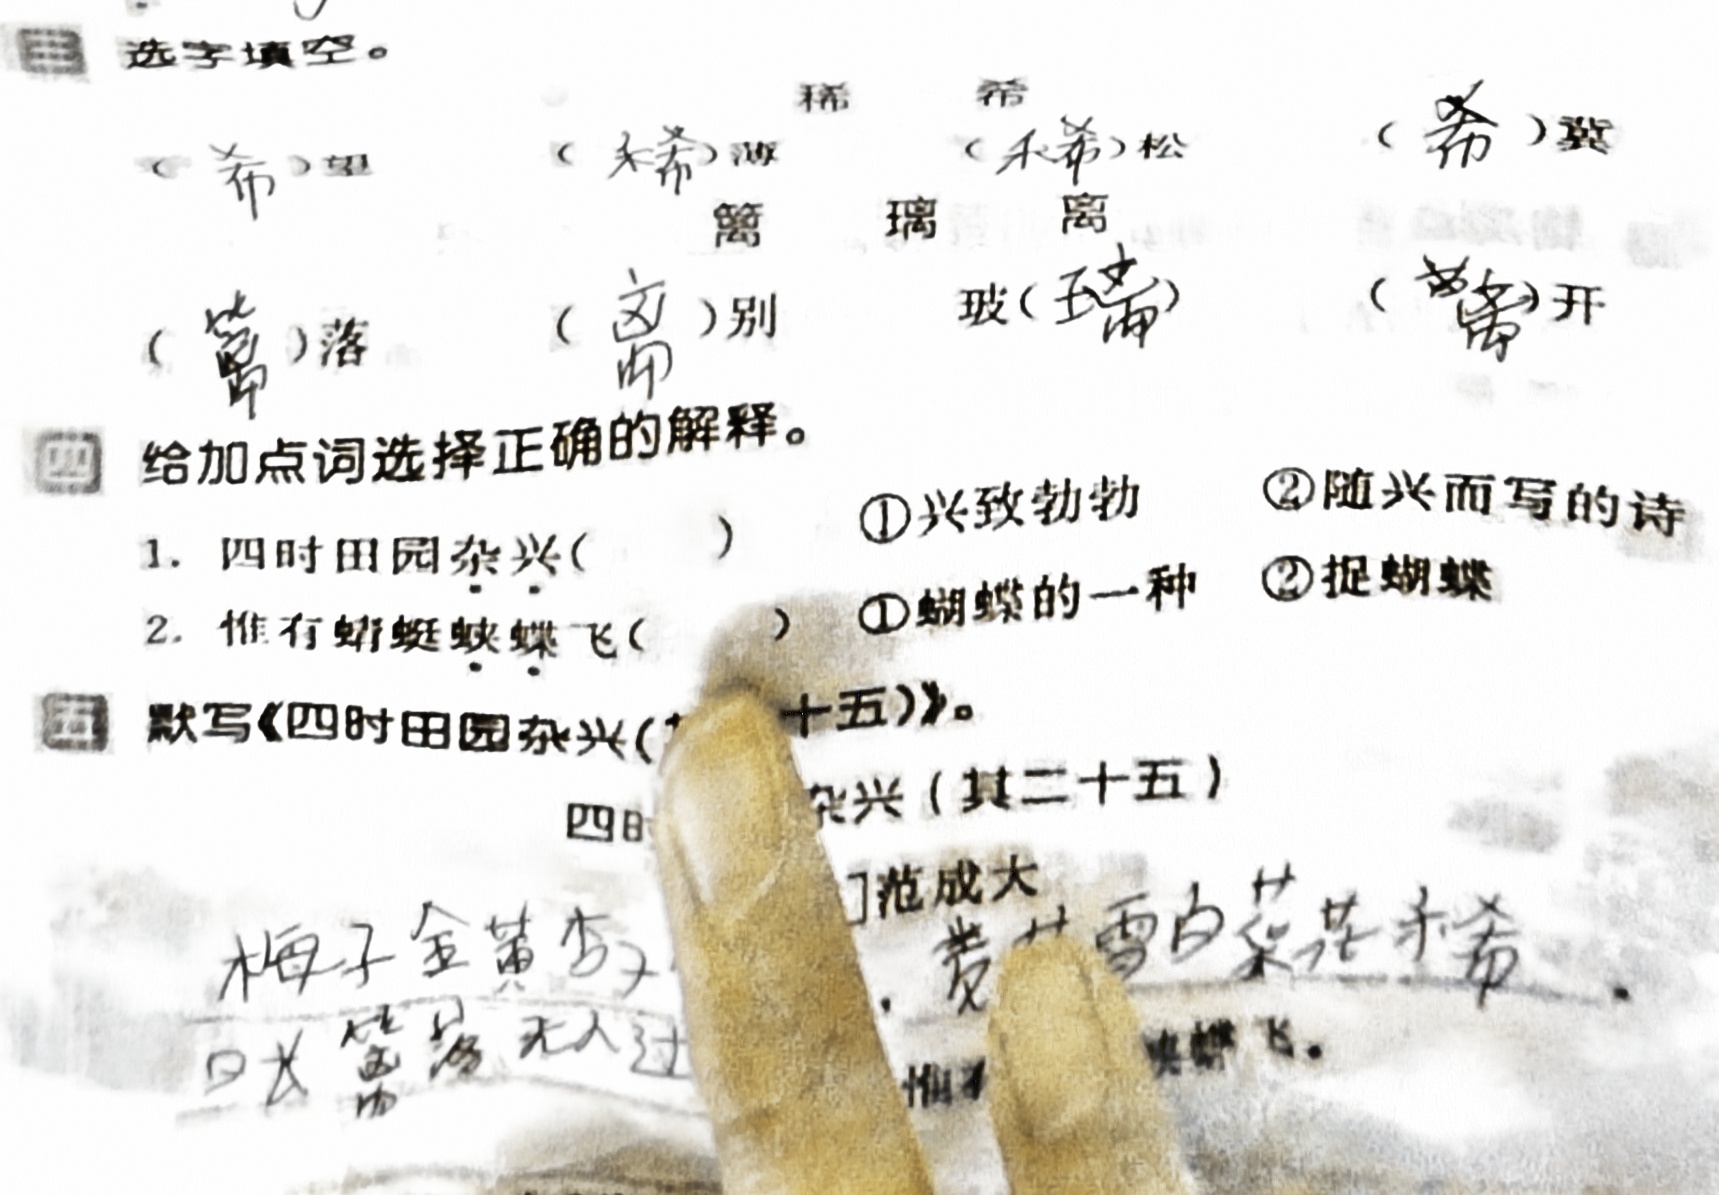 三 选字填空。
稀 希
(希)望 (稀)薄 (稀)松 (希)冀
篱 璃 离
(篱)落 (离)别 玻(璃) ( )开
四 给加点词选择正确的解释。
1. 四时田园杂兴( ) ①兴致勃勃 ②随兴而写的诗
2. 惟有蜻蜓蛱蝶飞( ) ①蝴蝶的一种 ②捉蝴蝶
五 默写《四时田园杂兴( 十五)》。
四时 杂兴(其二十五)
]范成大
梅子金黄杏子 . 麦 雪白菜花稀 .
日长篱落无人过 惟 蛱蝶飞.